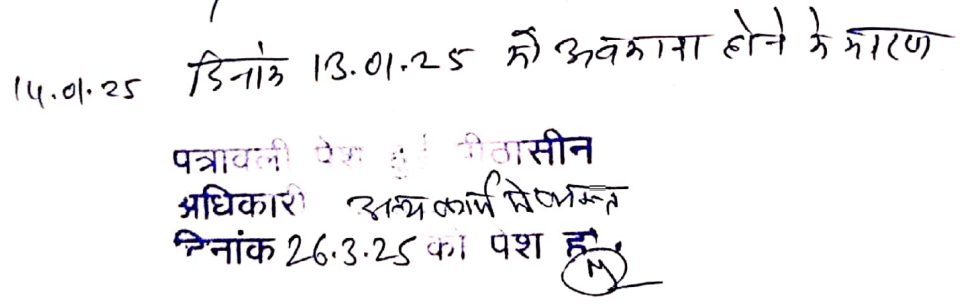 14.01.25 दिनांक 13.01.25 को अवकाश होने के कारण
पत्रावली पेश हुई पीठासीन
अधिकारी अन्य कार्य मे व्यस्त
दिनांक 26.3.25 को पेश हो.
M